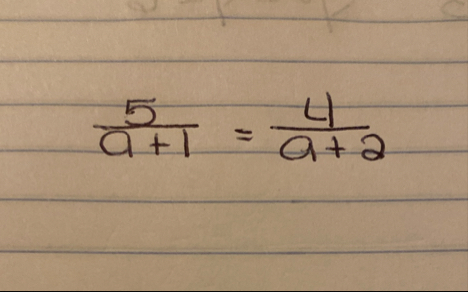 5/(a+1) = 4/(a+2)